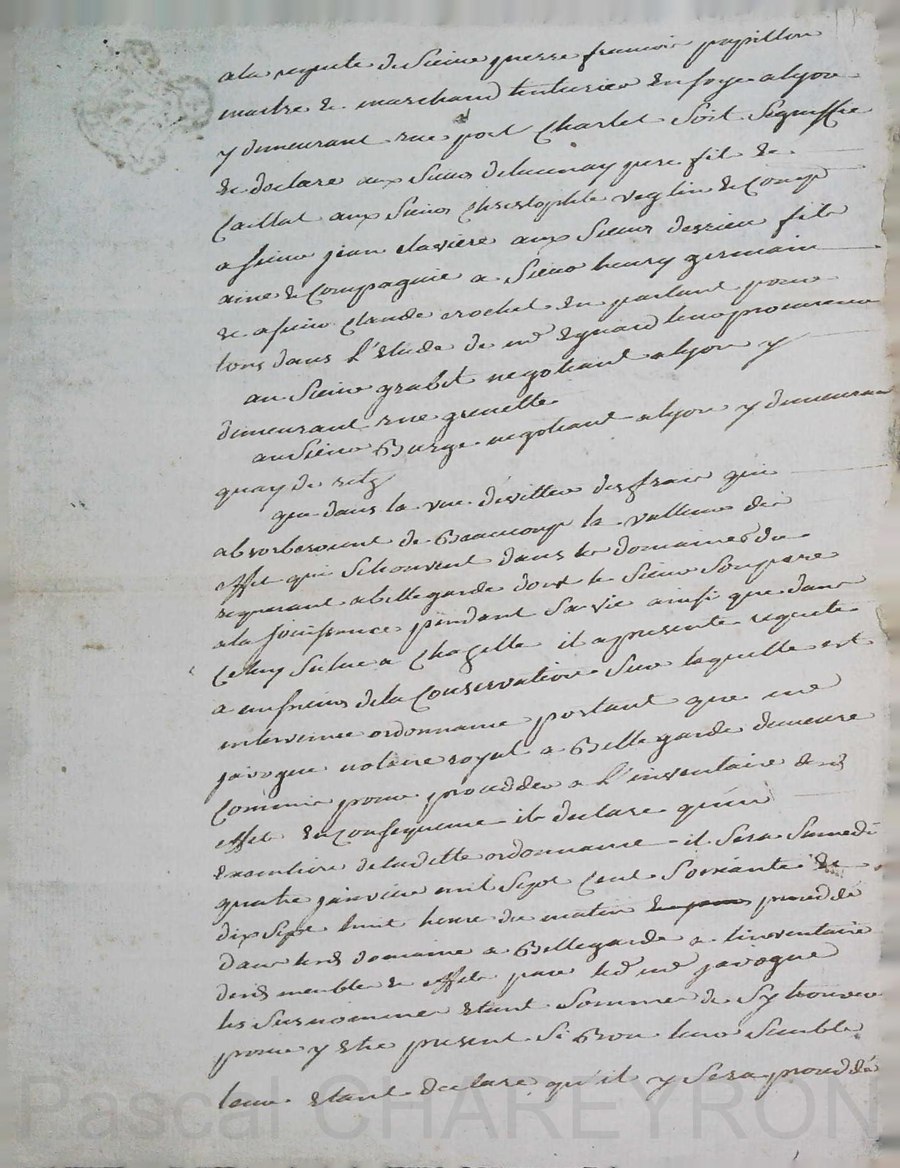 ala requete de Sieur pierre francois papillon
maitre & marchand tinturier en soye a lyon
y demeurant rue port Charlet soit signiffié
& declare aux sieurs delaunay pere fils &
Caillat aux sieurs Christophle veglin & Comp
a sieur jean claviere aux sieurs derrieu fils
ainé & Compagnie a sieur henry germain
& a sieur Claude crochet en parlant pour
tous dans l'etude de me eynard leur procureur
au sieur grabit negotiant a lyon y
demeurant rue grenette
au sieur Burge negotiant a lyon y demeurant
quay de retz
que dans la vue d'éviter des frais qui
absorberoient de Beaucoup la valleur des
effet qui se trouvent dans les domaines du
requerant a bellegarde dont le sieur son pere
a la jouissance pendant sa vie ainsi que dans
celuy situé a Chazelle il a presenté requete
a messieurs de la Conservation sur laquelle est
intervenue ordonnance portant que me
javogue notaire royal a Bellegarde demeure
Commis pour proceder a l'inventaire desd
effets en consequence il declare qu'en
execution de laditte ordonnance il sera samedi
quatre janvier mil sept cent soixante &
dix sept huit heure du matin procedé
dans lesd domaine a Bellegarde a l'inventaire
desd meubles & effets par led me javogue
les susnommes etant sommes de s'y trouver
pour y etre present si Bon leur semble
leur etant declare qu'il y sera procedé
Pascal CHAREYRON